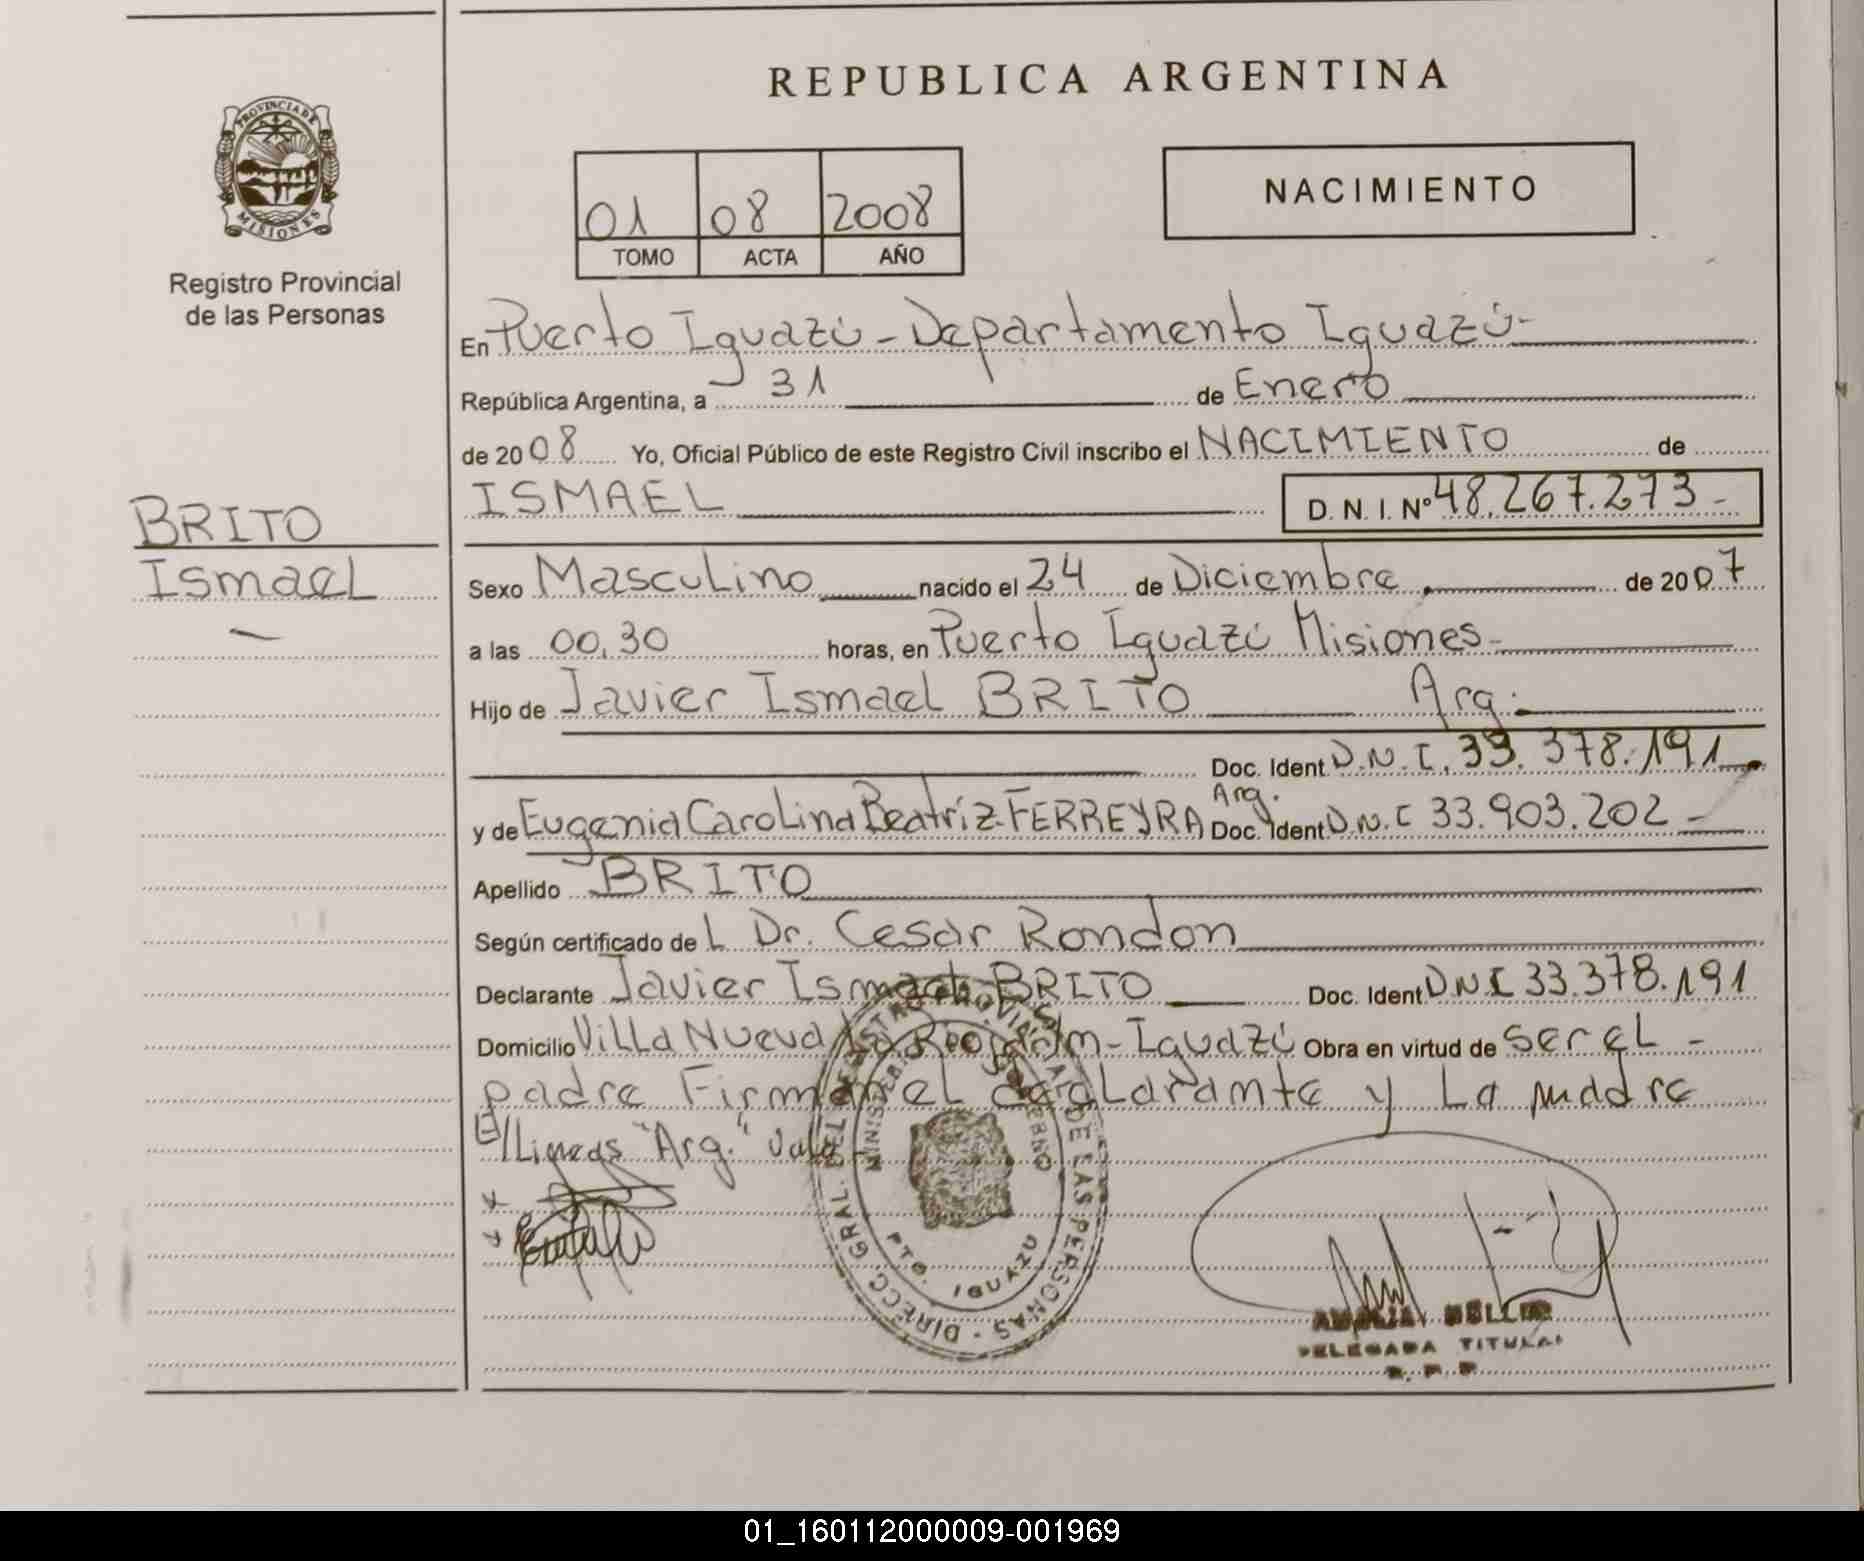 REPUBLICA ARGENTINA
PROVINCIA DE MISIONES
Registro Provincial
de las Personas
01 08 2008
TOMO ACTA AÑO
NACIMIENTO
En Puerto Iguazú - Departamento Iguazú-
República Argentina, a 31 de Enero
de 2008 Yo, Oficial Público de este Registro Civil inscribo el NACIMIENTO de
ISMAEL D. N. I. Nº 48.267.273-
BRITO
Ismael
Sexo Masculino nacido el 24 de Diciembre de 2007
a las 00,30 horas, en Puerto Iguazú Misiones-
Hijo de Javier Ismael BRITO Arg.
Doc. Ident D.N.I. 33.378.191
Arg.
y de Eugenia Carolina Beatríz FERREYRA Doc. Ident D.N.I 33.903.202
Apellido BRITO
Según certificado de L Dr. Cesar Rondon
Declarante Javier Ismael BRITO Doc. Ident DNI 33.378.191
Domicilio Villa Nueva - Iguazú Obra en virtud de ser el -
padre Firman el declarante y La madre
E/Lineas "Arg." Vale
DIRECC. GRAL. DEL REGISTRO PROVINCIAL DE LAS PERSONAS
MINISTERIO GOBIERNO
PTO. IGUAZU
DELEGADA TITULAR
R. P. P
01_160112000009-001969